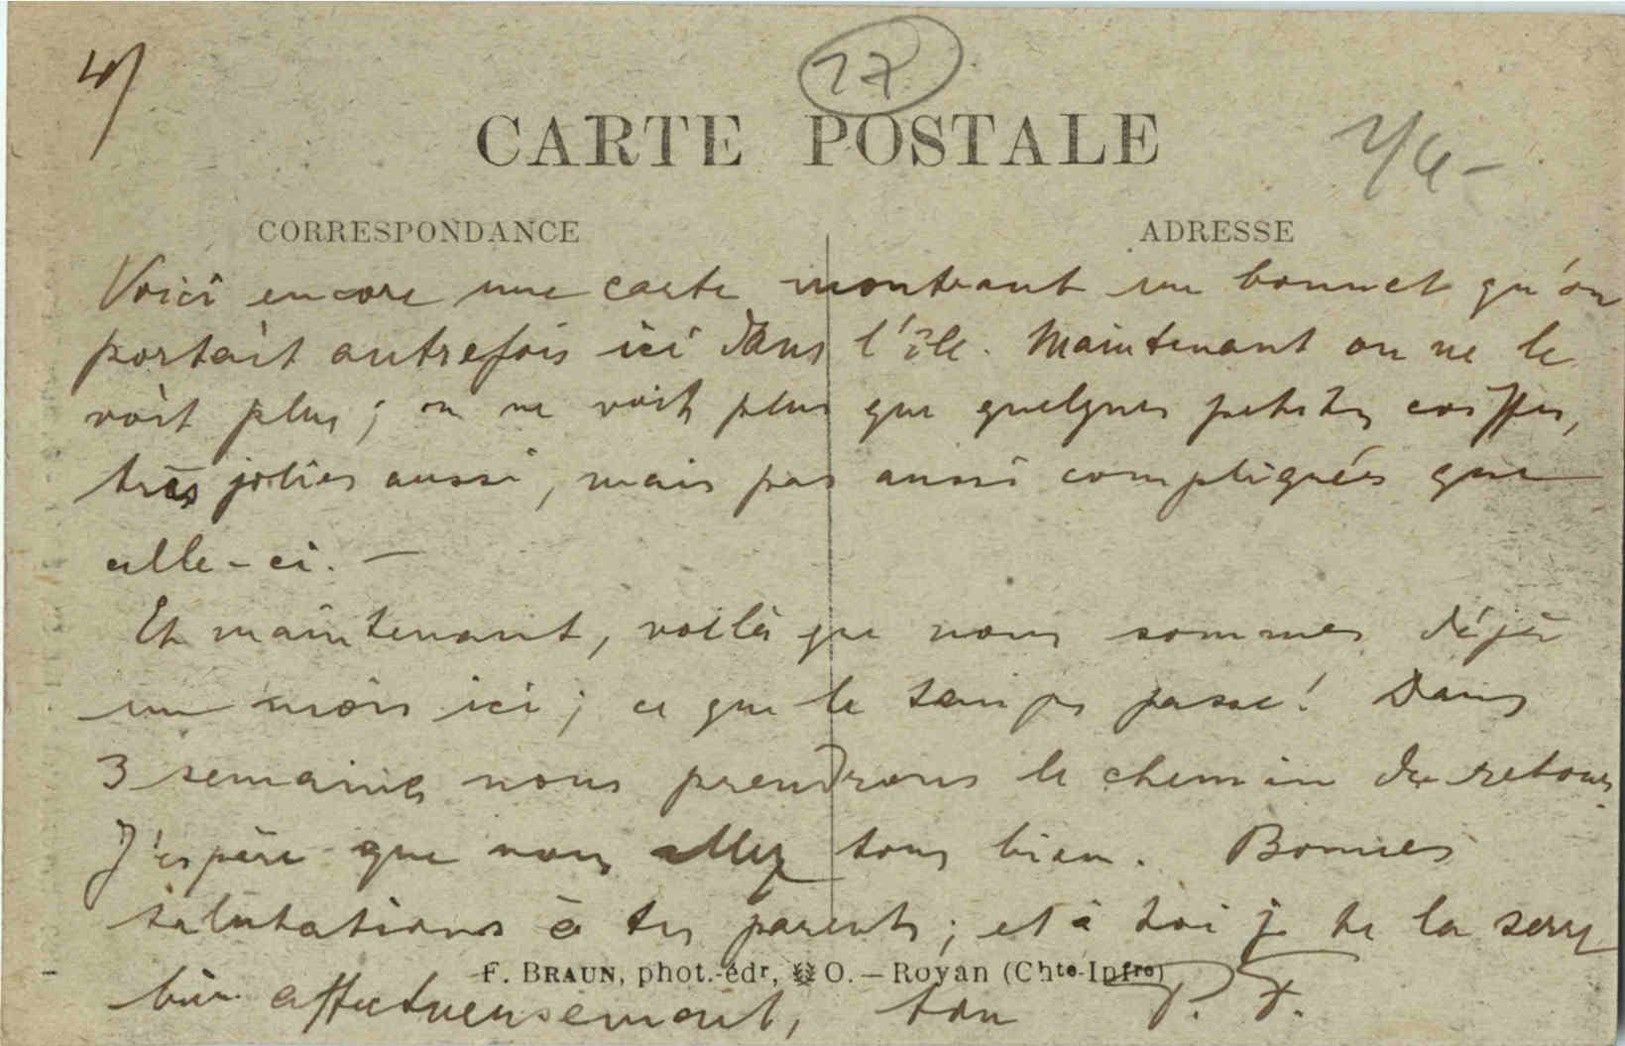 4)
17
CARTE POSTALE
CORRESPONDANCE
ADRESSE
Voici encore une carte montrant un bonnet qu'on
portait autrefois ici dans l'île. Maintenant on ne le
voit plus ; on ne voit plus que quelques petites coiffes,
très jolies aussi, mais pas aussi compliquées que
celle-ci. —
Et maintenant, voilà que nous sommes déjà
un mois ici ; ce que le temps passe ! Dans
3 semaines nous prendrons le chemin du retour.
J'espère que vous allez tous bien. Bonnes
salutations à tes parents ; et à toi je te la serre
F. BRAUN, phot.-édr, O. — Royan (Chte-Infre)
bien affectueusement, ton